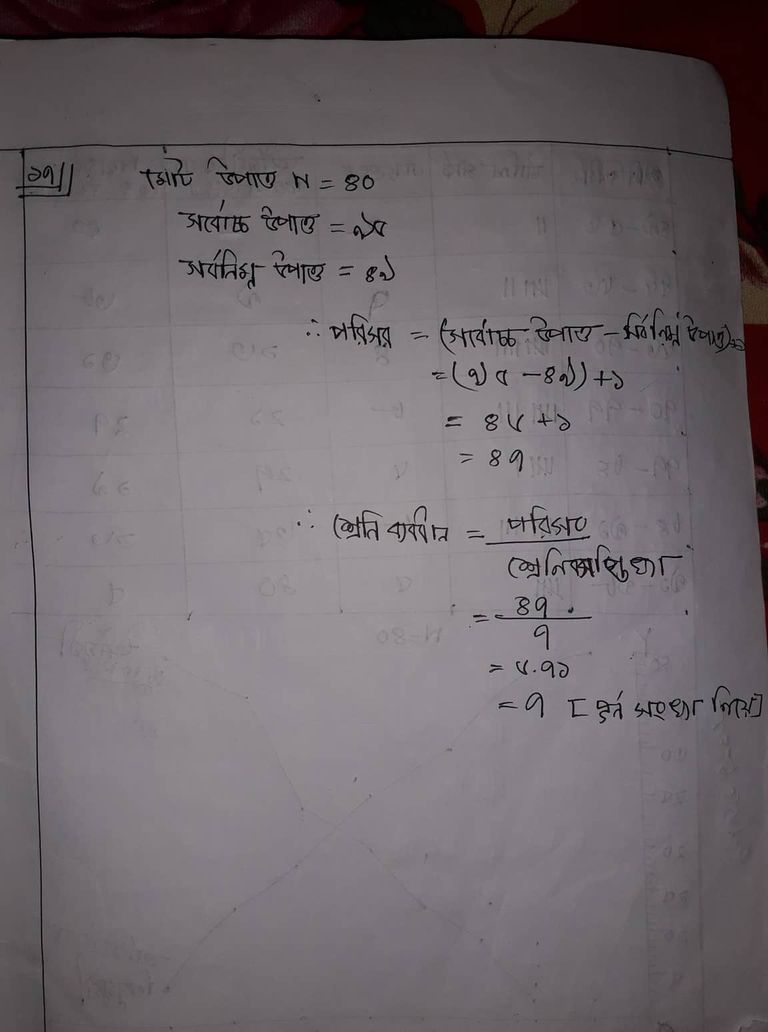 ১৭|| মোট উপাত্ত N = ৪০
সর্বোচ্চ উপাত্ত = ৯৫
সর্বনিম্ন উপাত্ত = ৪৯
∴ পরিসর = (সর্বোচ্চ উপাত্ত - সর্বনিম্ন উপাত্ত)+১
= (৯৫ - ৪৯) + ১
= ৪৬ + ১
= ৪৭
∴ শ্রেণি ব্যবধান = পরিসর
= ৪৭
৭
= ৬.৭১
= ৭ [পূর্ণ সংখ্যা নিয়ে]